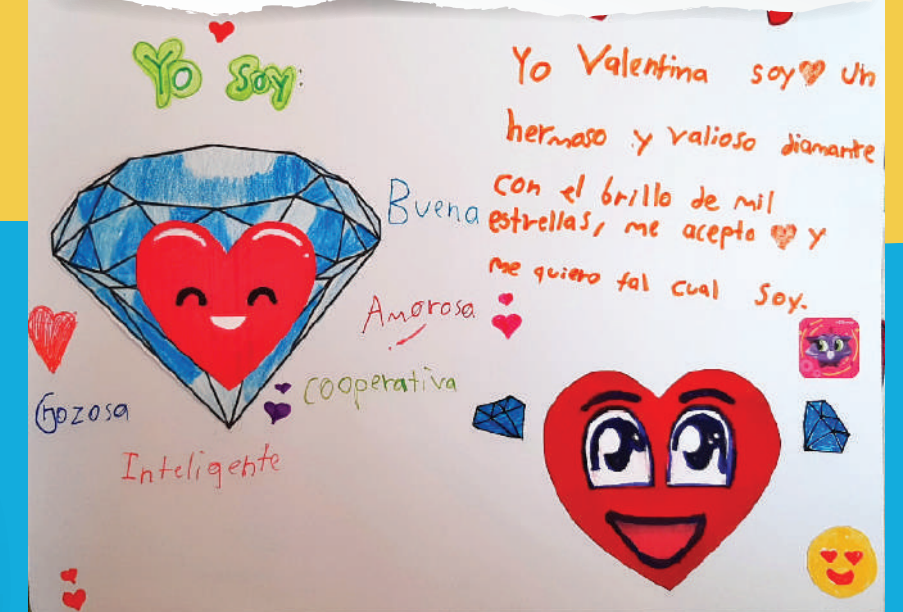 Yo Soy:
Buena
Amorosa
Cooperativa
Gozosa
Inteligente
Yo Valentina soy un
hermoso y valioso diamante
con el brillo de mil
estrellas, me acepto y
me quiero tal cual soy.